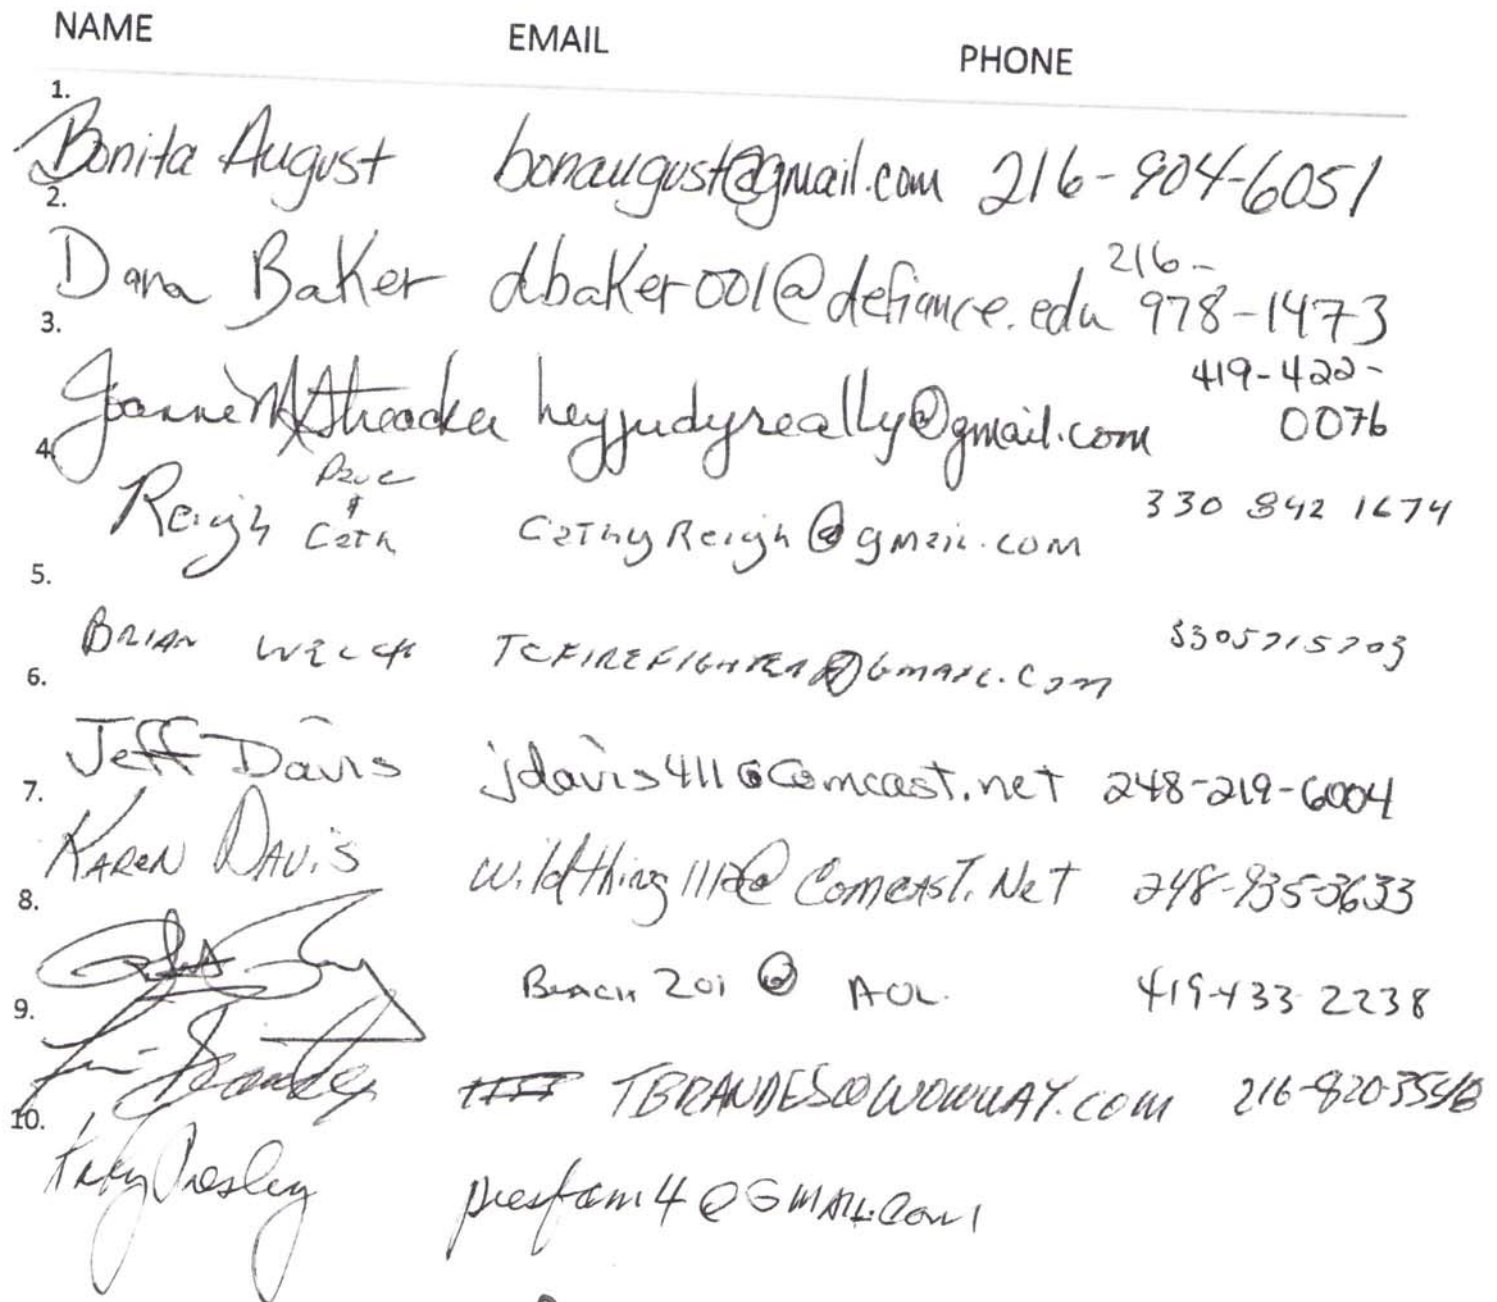 NAME EMAIL PHONE
1.
Bonita August bonaugust@gmail.com 216-904-6051
2.
Dana Baker dbaker001@defiance.edu 216-978-1473
3.
Joanne M Streacker heyjudyreally@gmail.com 419-422-0076
4.
Reigh Dave & Cath CathyReigh@gmail.com 330 842 1674
5.
BRIAN WELCH TCFIREFIGHTER@GMAIL.COM 3305715703
6.
Jeff Davis jdavis411@Comcast.net 248-219-6004
7.
KAREN DAVIS wildthing1112@Comcast.Net 248-935-3633
8.
Beach 201 @ AOL. 419-433-2238
9.
TBRANDES@WOWWAY.COM
10.
Presley presfam4@GMAIL.Com